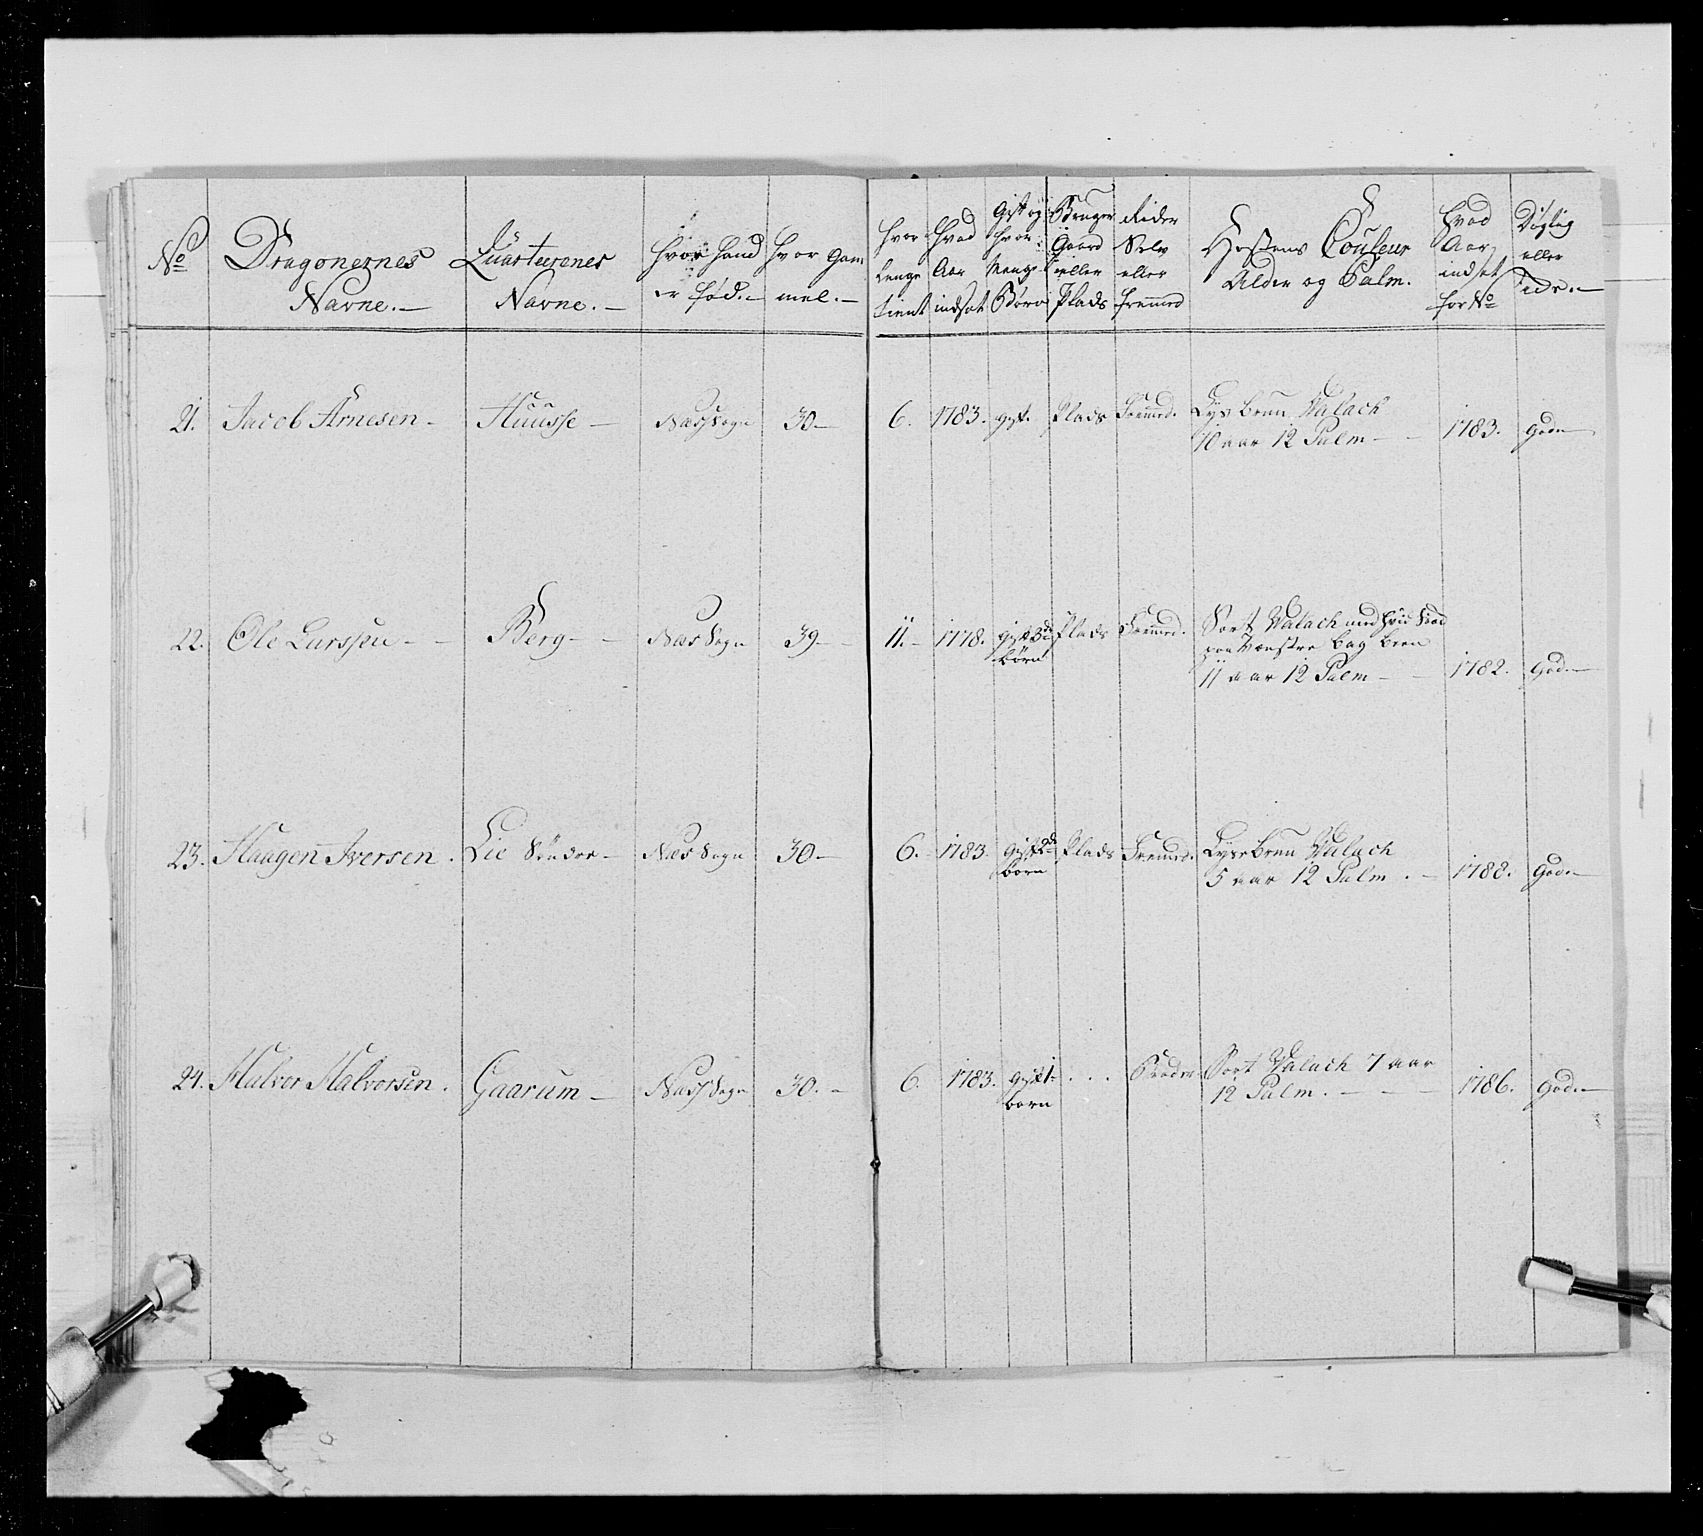 No Dragonernes Navne.— Quarteerenes Navne.— Hvor hand er fød.— Hvor Gammel.— Hvor lenge tient Hvad Aar indsat Gift og hvor Mange Børn Bruger Gaard eller Plads Rider Selv eller fremmed Hestens Couleur Alder og Palm. Hvad Aar indsat for No Dygtig eller
21. Jacob Arnesen — Huusse — Næs Sogn 30— 6. 1783. gift. Plads Fremmed. Lys brun Walach
10 aar 12 Palm — — 1783. God—
22. Ole Larssen — — Berg — — Næs Sogn 39— — 11.— 1778. gift 3de børn Plads Fremmed. Sort Walach med hvid
paa Venstre bag been
11 aar 12 Palm — — 1782. God.—
23. Haagen Iversen. Lie Søndre — Næs Sogn 30— 6.— 1783. Gift 2de børn Plads Fremmed. Lysebrun Walach
5 aar 12 Palm . — 1788. God.—
24. Halvor Halvorsen. Gaarum — Næs Sogn 30.— 6. 1783. gift 1. børn . . . Sort Walach 7 aar
12 Palm. — — — 1786. God.—